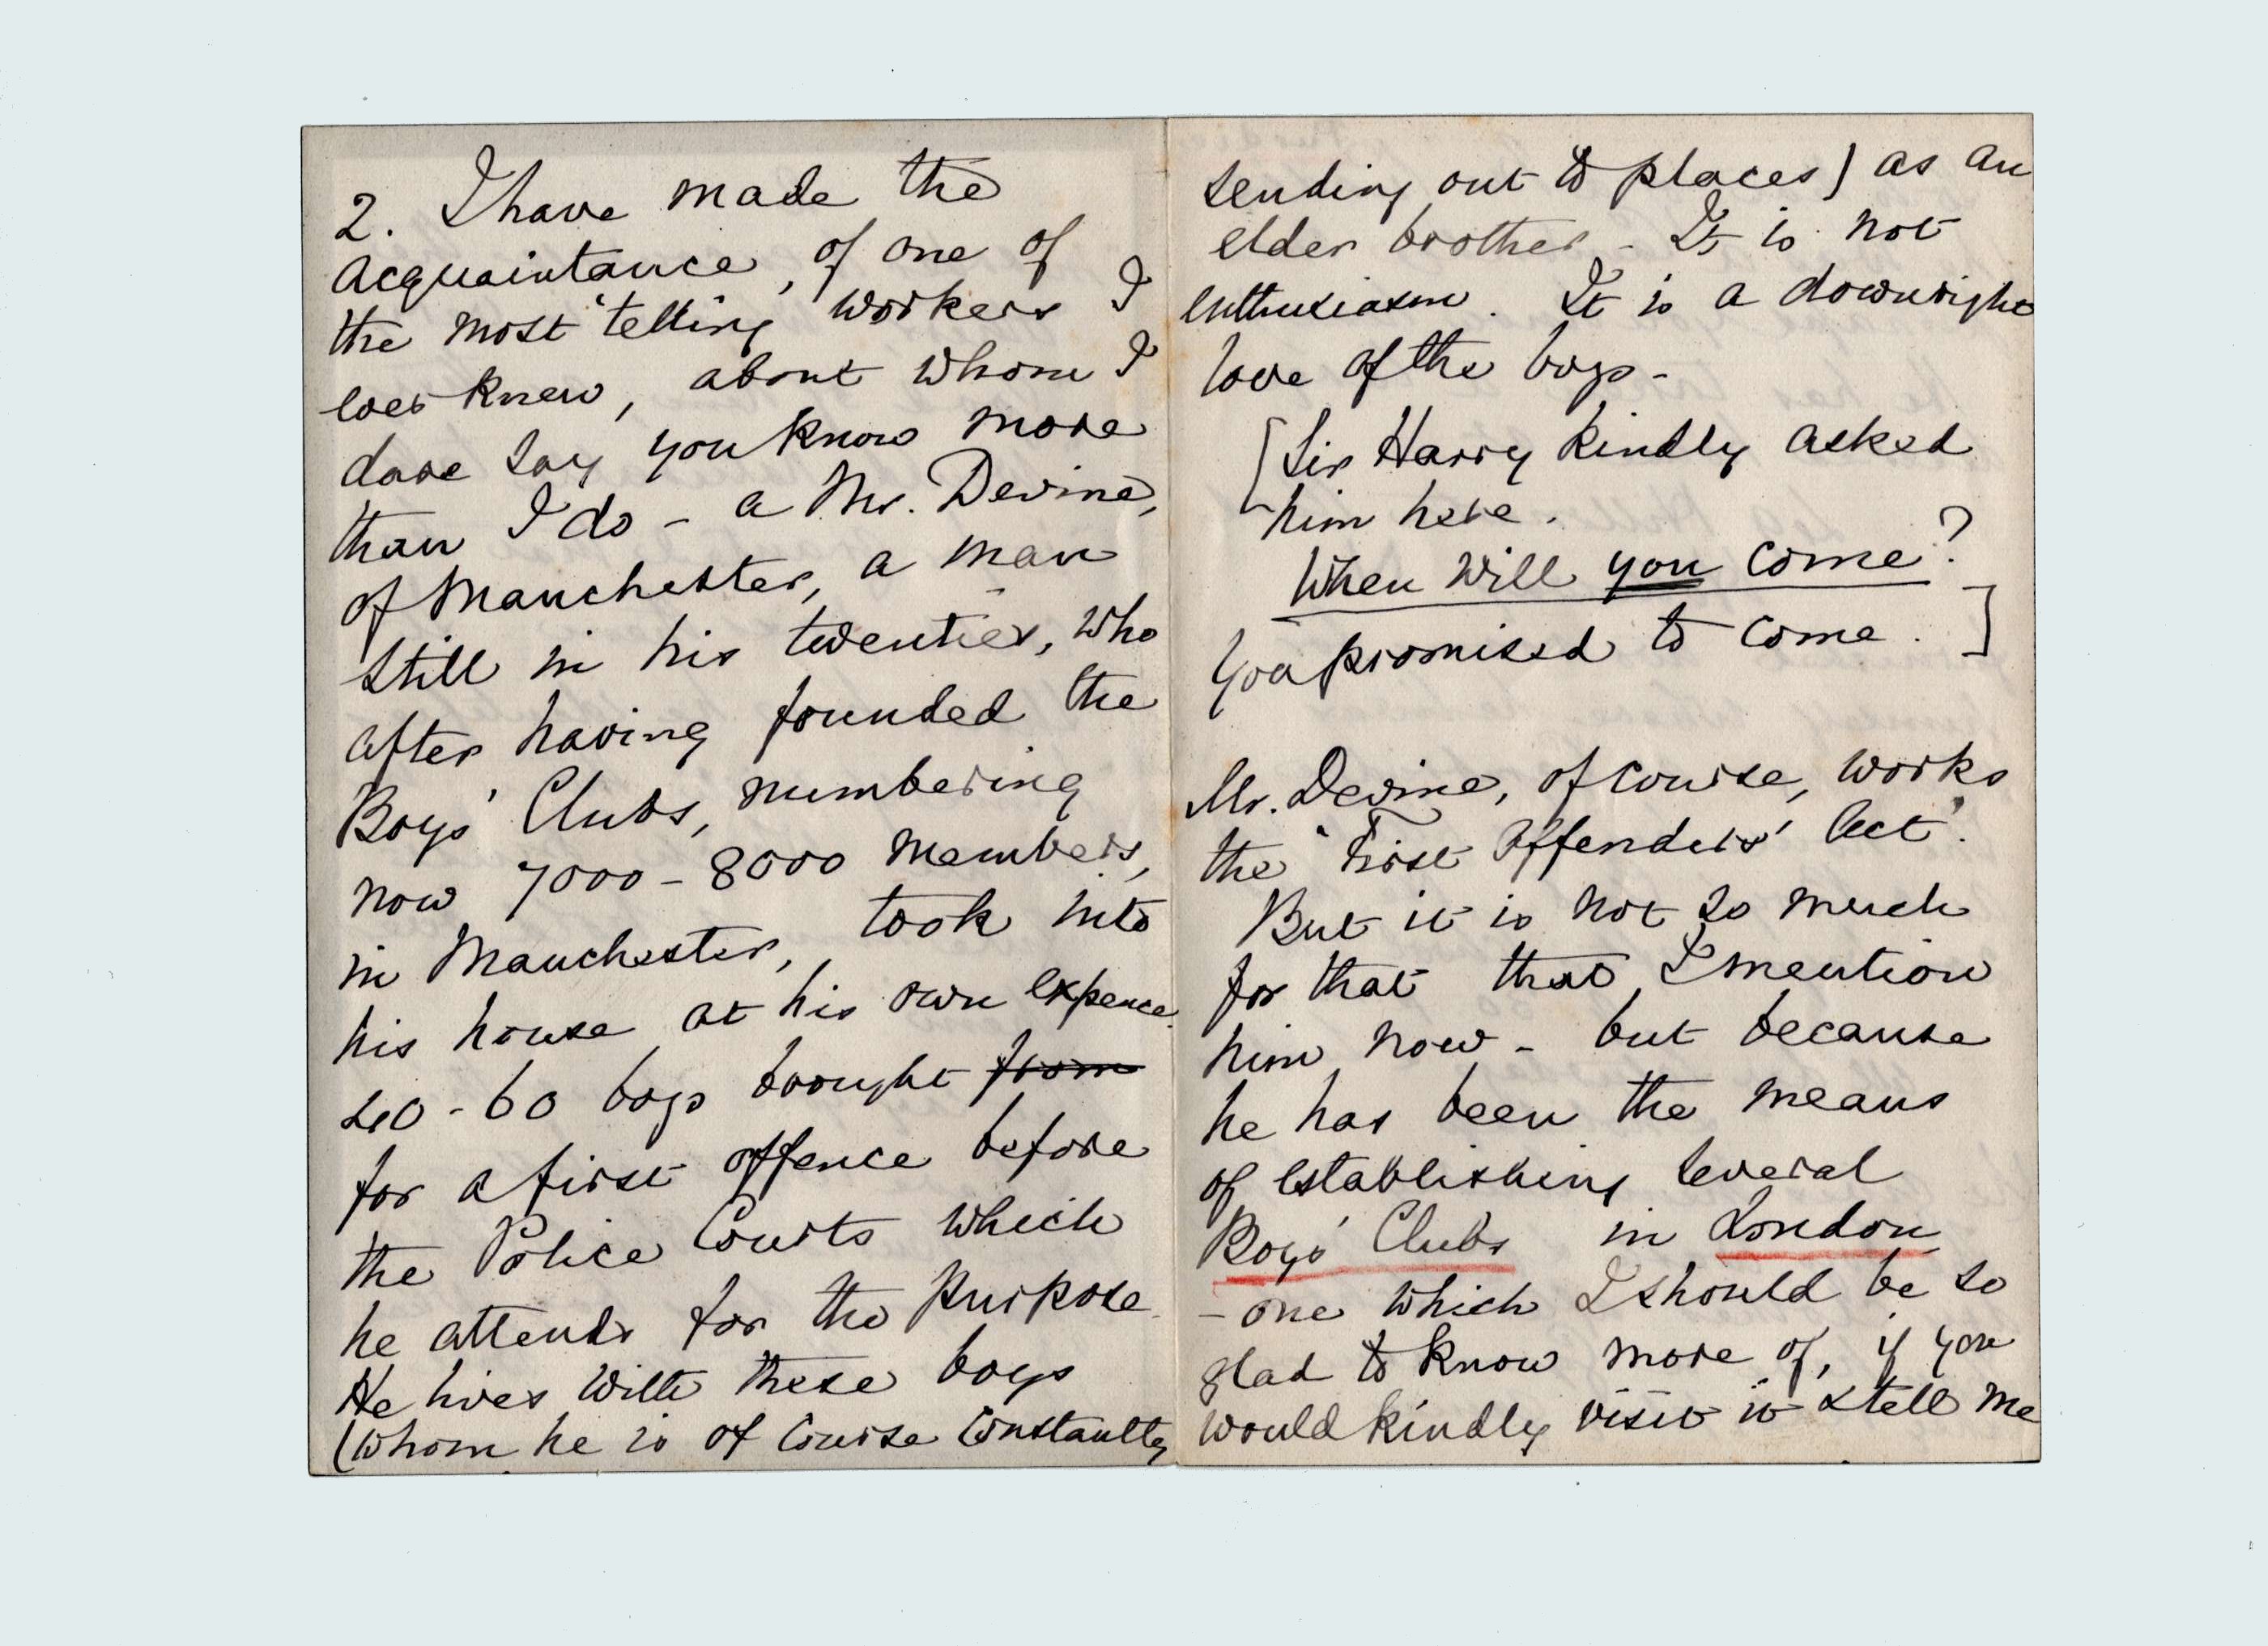 2. I have made the
acquaintance, of one of
the most 'telling' workers I
ever knew, about whom I
dare say you know more
than I do - a Mr. Devine,
of Manchester, a man
still in his twenties, who
after having founded the
Boys' Clubs, numbering
now 7000 - 8000 members,
in Manchester, took into
his house at his own expence
40 - 60 boys brought from
for a first offence before
the Police Courts which
he attends for the purpose.
He lives with these boys
(whom he is of course constantly
sending out to places) as an
elder brother - It is not
enthusiasm. It is a downright
love of the boys -
[Sir Harry kindly asked
him here.
When will you come?
You promised to come.]
Mr. Devine, of course, works
the 'First Offenders' Act'.
But it is not so much
for that that I mention
him now - but because
he has been the means
of establishing several
Boys' Clubs in London
- one which I should be so
glad to know more of, if you
would kindly visit it & tell me